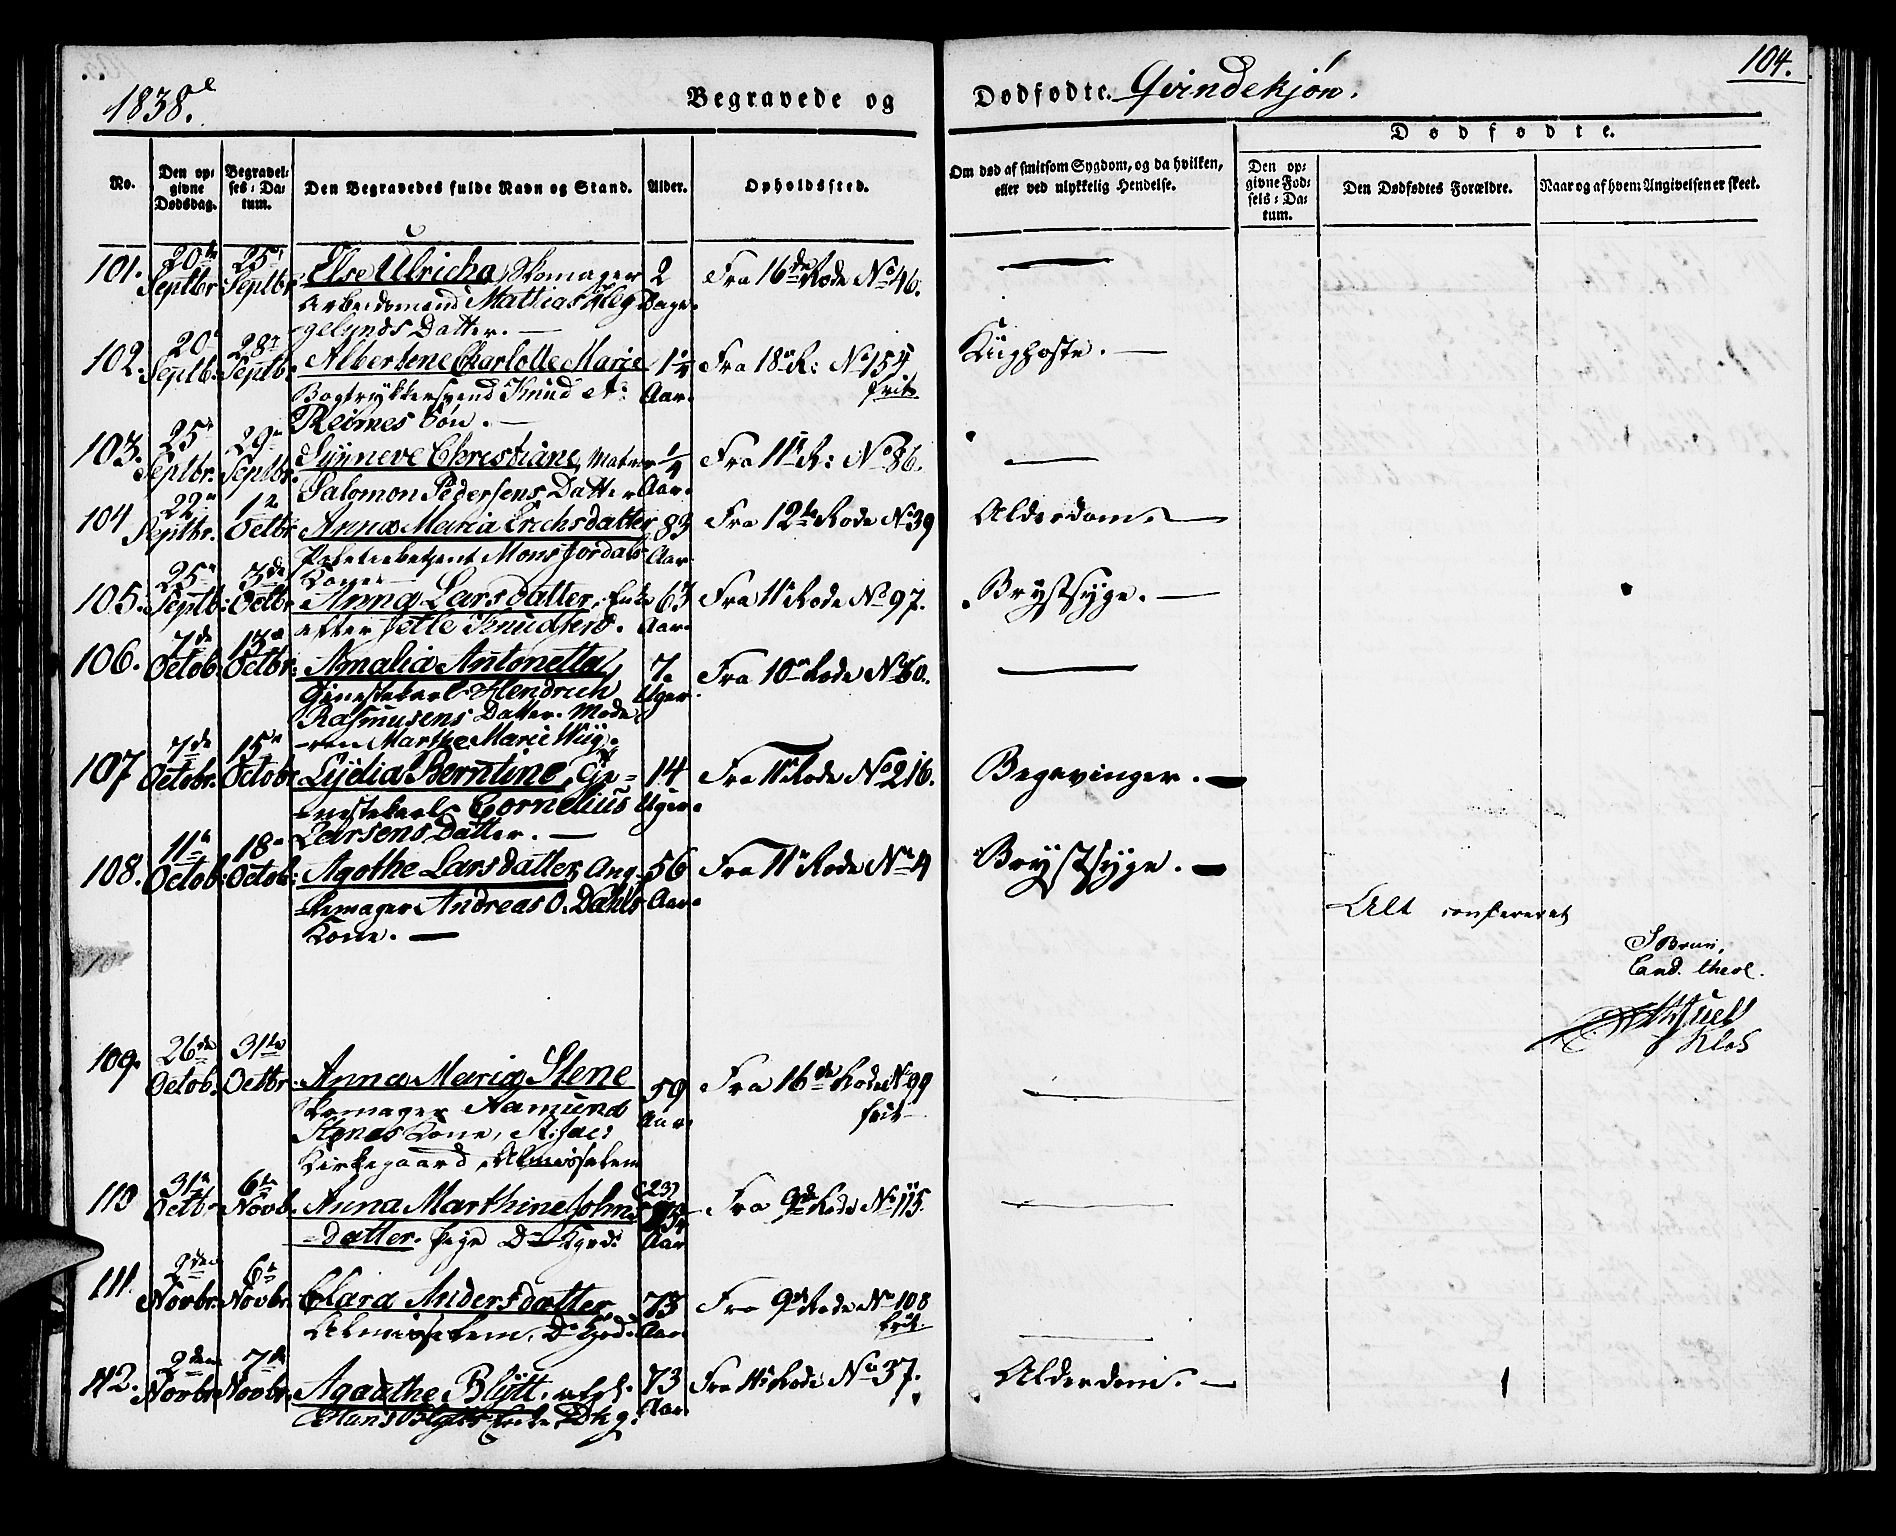 1838.
Begravede og Dødfødte. Qvindekjøn.
104.
Dødfødte.
No.
Den opgivne Dødsdag.
Begravelses-Datum.
Den Begravedes fulde Navn og Stand.
Alder.
Opholdssted.
Om død af smitsom Sygdom, og da hvilken, eller ved ulykkelig Hendelse.
Den opgivne Fødsels-Datum.
Den Dødfødtes Forældre.
Naar og af hvem Angivelsen er skeet.
101. 20de Septbr. 25de Septbr. Else Ulricha, Skomager 2 Fra 16de Rode No 46. —
Arbeidsmand Mathias Heg Dage.
gelunds Datter. —
102. 20de Septb. 28de Septb. Albertene Charlotte Marie 1 1/4 Fra 18de R: No 154 Kighoste. —
Bogtrykkersvend Knud A: Aar. frit
Reimes Søn. —
103. 25de Septbr. 29de Septbr. Synneve Christiane, Matros 1/4 Fra 11te R: No 86. —
Salomon Pedersens Datter Aar.
104 22de Septbr. 1te Octbr. Anna Maria Erichsdatter 83 Fra 12te Rode No 39 Alderdom. —
Politiebetjent Mons Jordals Aar
Kone —
105. 25de Septb. 3de Octbr. Anna Larsdatter, Enke 63 Fra 11te Rode No 97. Brystsyge. —
efter Jelle Knudsen. Aar.
106. 7de Octob. 13de Octbr. Amalia Antonetta, 7 Fra 10de Rode No 80. —
Tjenestekarl Hendrich Uger.
Rasmusens Datter. Mode
-ren Marthe Marie Wiig.
107 7de Octobr. 15de Octobr. Lydia Berntine, Tje- 14 Fra 11te Rode No 216. Begavinger. —
-nestekarl Cornelius Uger.
Larsens Datter. —
108. 11te Octob. 18de Octob. Agothe Larsdatter, Ang- 56 Fra 11te Rode No 4 Brystsyge. —
-lemager Andreas O. Dahls Aar.
Kone. —
Alt confereret
S Brun,
Cand. theol.
Klok
109. 26de Octob. 31te Octbr. Anna Maria Stene 59 Fra 16de Rode No 99 —
Skomager Aamund Aar. frit
Stenes Kone, St: Jac:
Kirkegaard, Almisselem
110 31te Octb. 6te Novb. Anna Marthine Johns (23) Fra 9de Rode No 115. —
-datter. Pige Do Kgrd: Aar
111. 2den Novbr. 6te Novbr. Clara Andersdatter, 73 Fra 9de Rode No 108 —
Almisselem, Do Kgrd: Aar frit.
112. 2den Novbr. 7de Novbr. Agaathe Blytt, afgl. 73 Fra 11te Rode No 37. Alderdom. — 1
Hans Blytts Enke, D kg. Aar